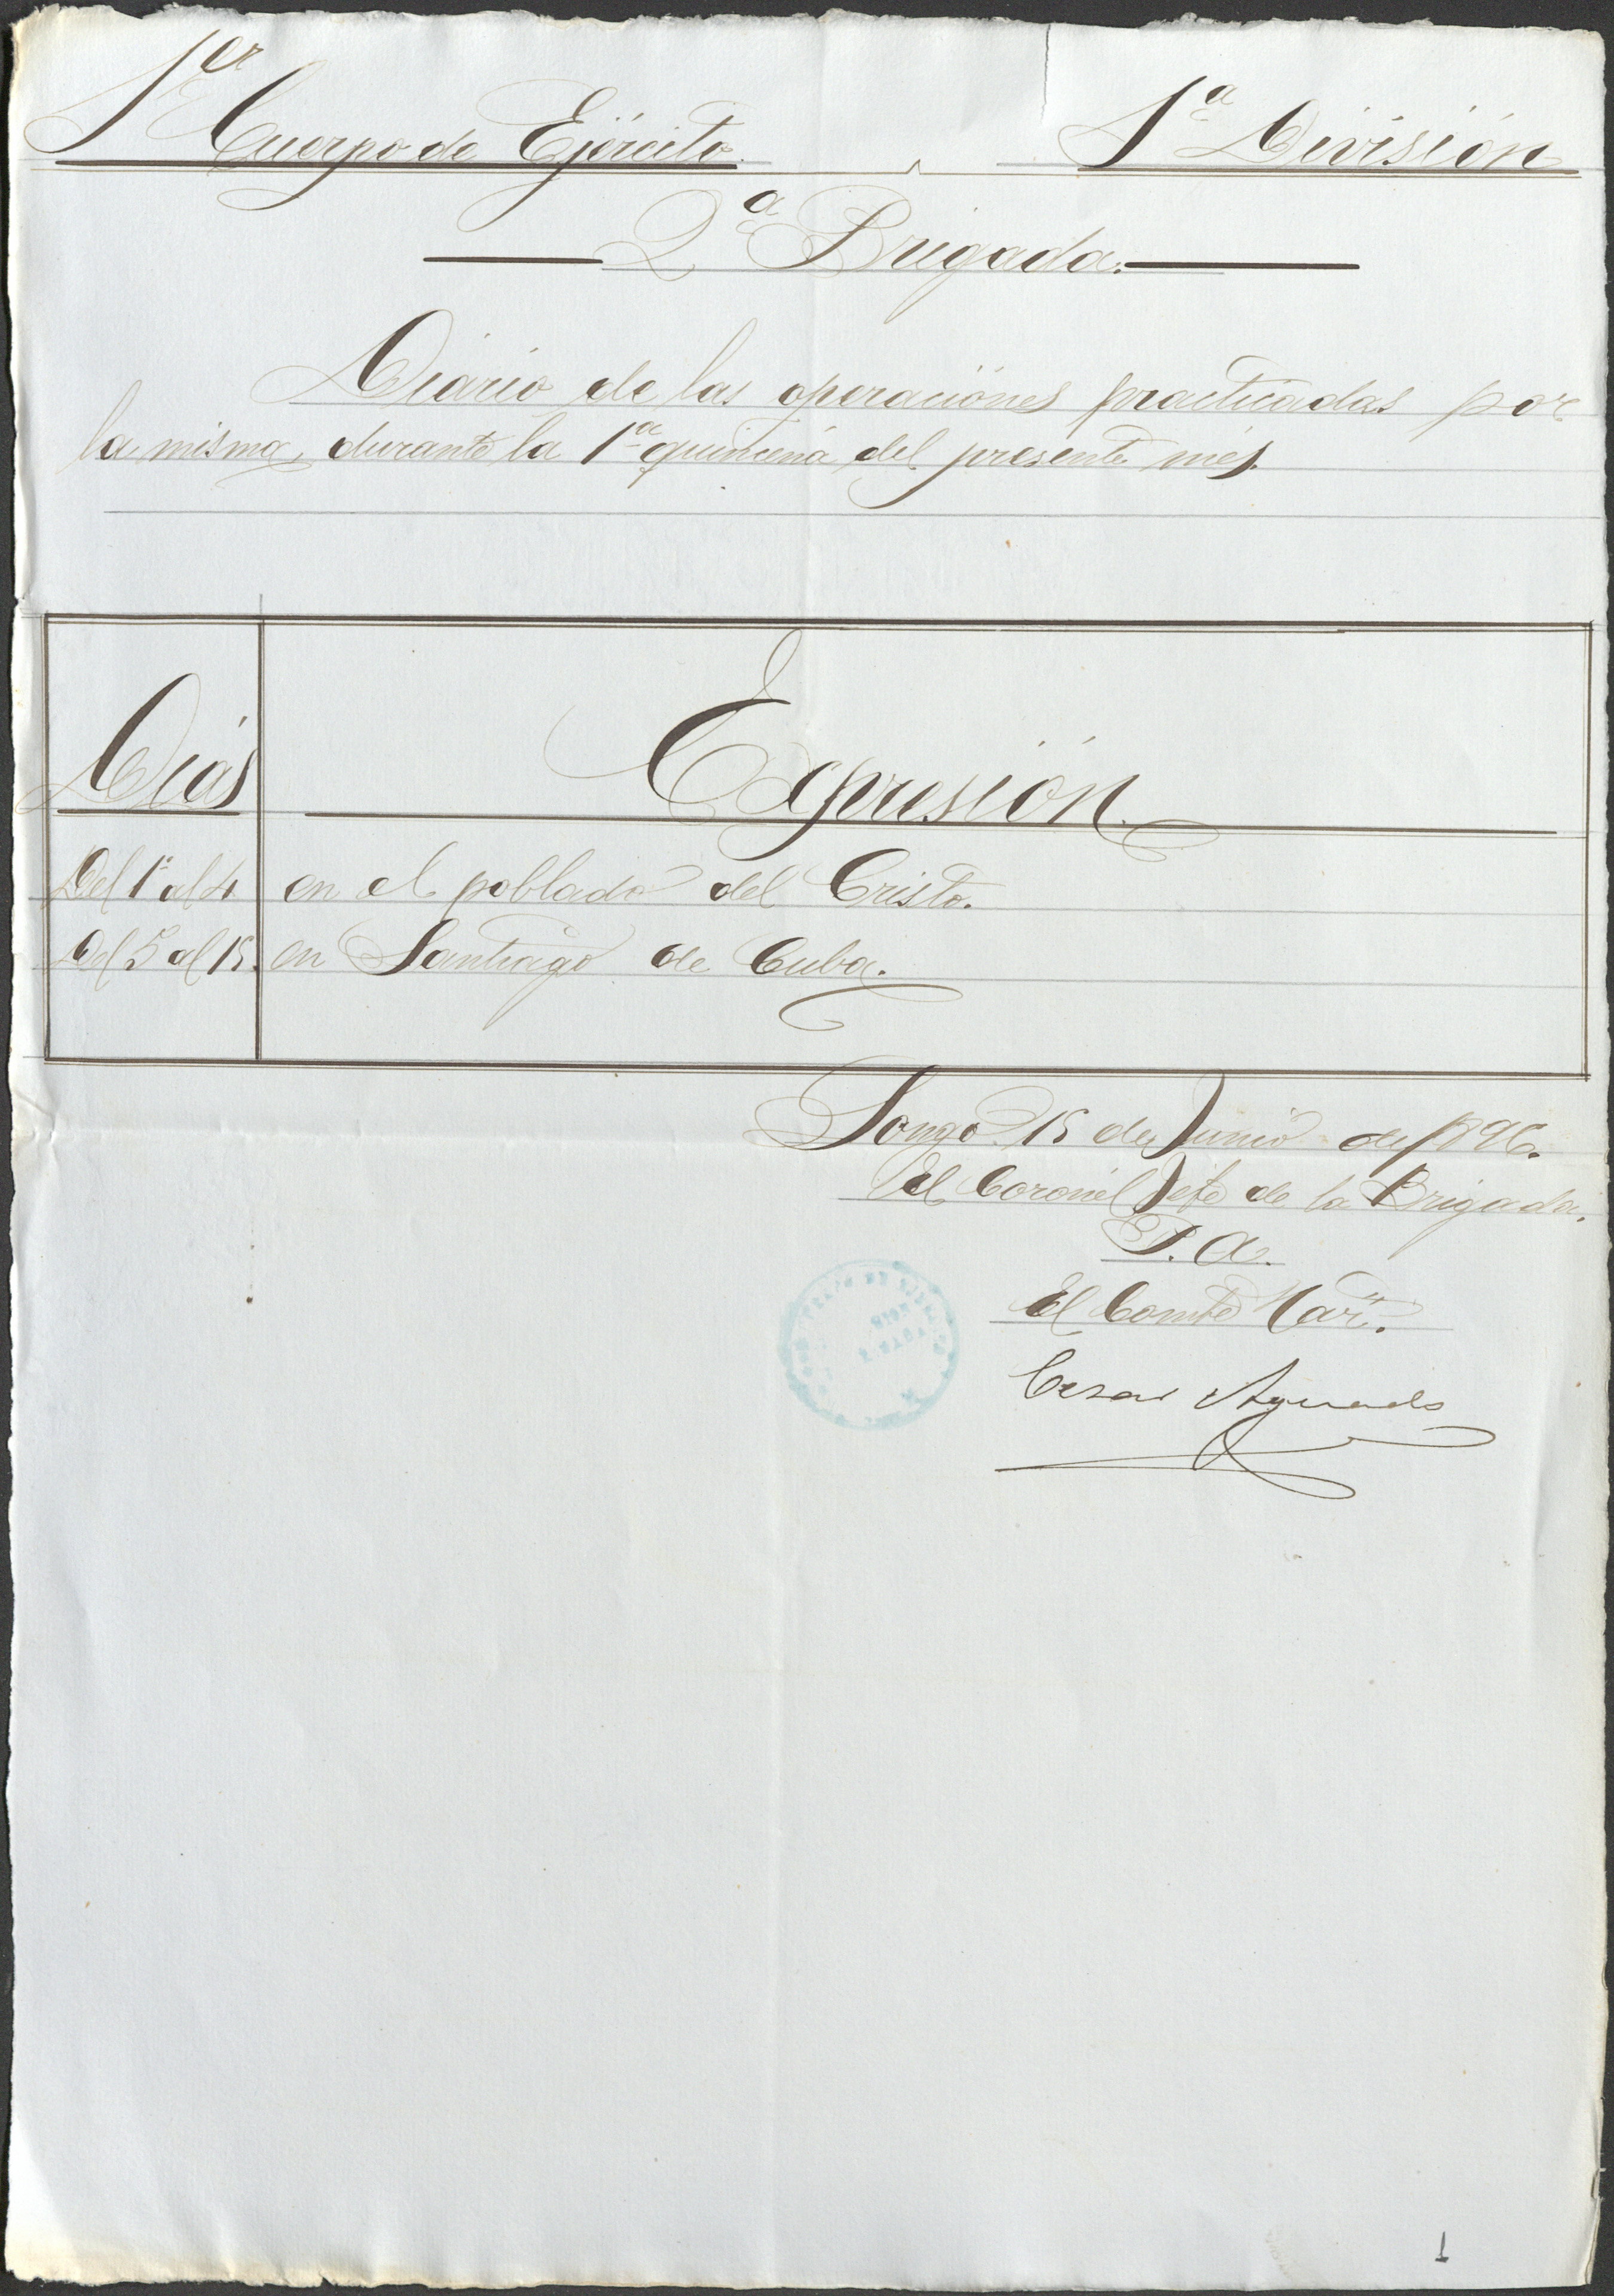 1er Cuerpo de Ejército. 1ª División
2ª Brigada.
Diário de las operaciónes practicadas por
la misma, durante la 1ª quincena del presente més.
Diás Expresión.
Del 1º al 4 en el poblado del Cristo.
Del 5 al 15. en Santiago de Cuba.
Songo 15 de Junio de 1896.
El Coronél Jefe de la Brigada.
P. A.
El Comte
Cesar Aguado
1